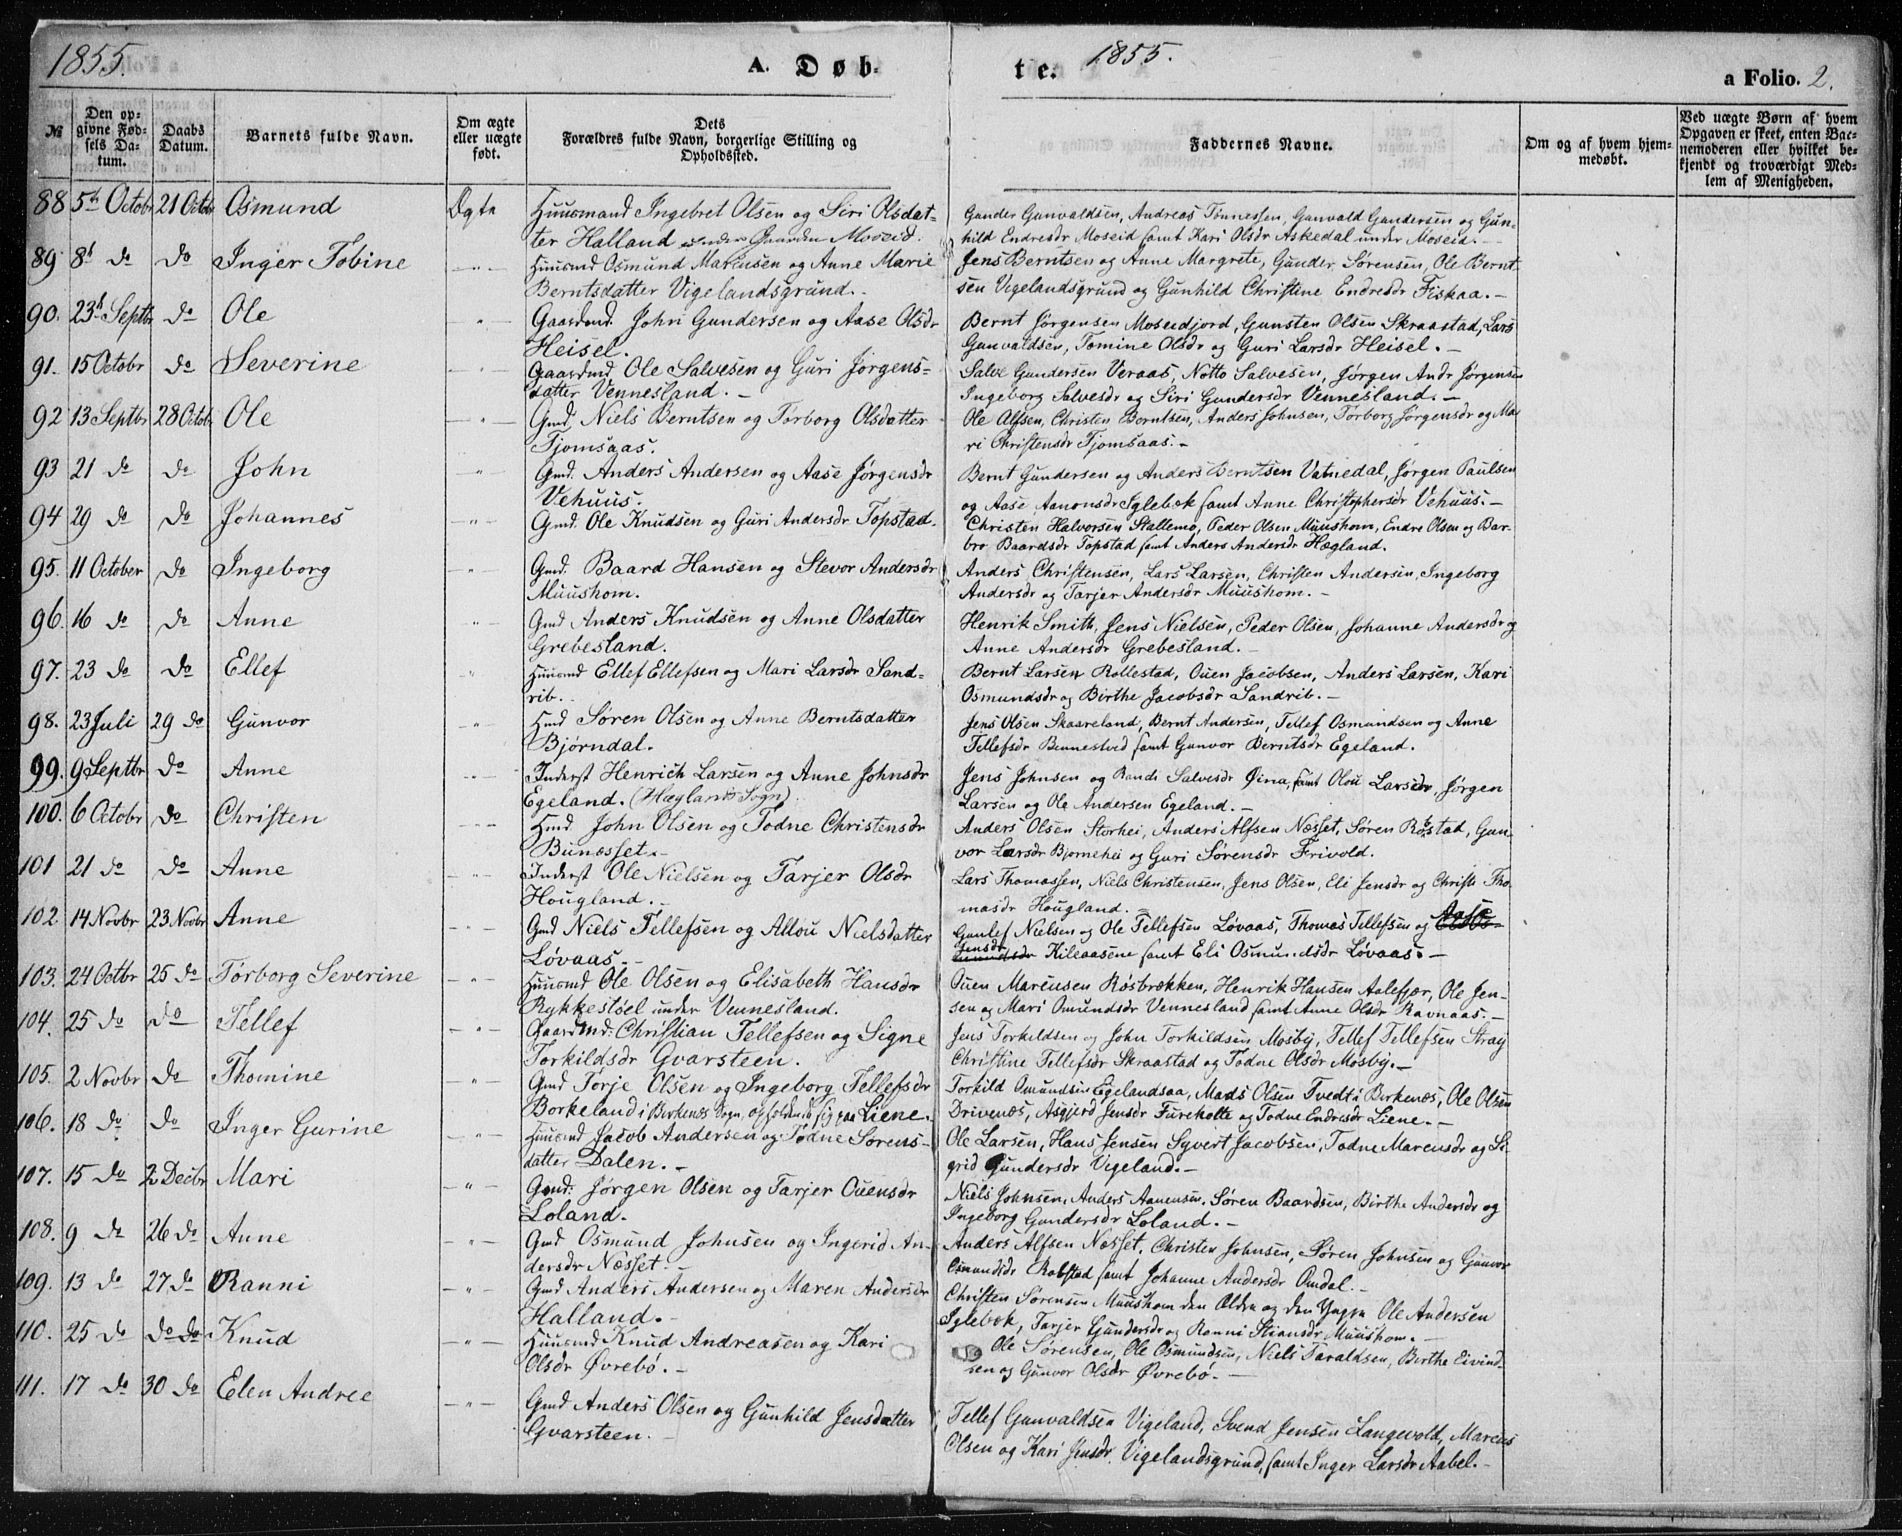 1855. A. Døb- te. 1855. a Folio. 2.
№ Den opgivne Fødsels Datum. Daabs Datum. Barnets fulde Navn. Om ægte eller uægte født. Dets Forældres fulde Navn, borgerlige Stilling og Opholdssted. Faddernes Navne. Om og af hvem hjemmedøbt. Ved uægte Børn af hvem Opgaven er skeet, enten Barnemoderen eller hvilket bekjendt og troværdigt Medlem af Menigheden.
88 5th Octobr 21 Octobr Osmund Ægte Huusmand Ingebret Olsen og Siri Olsdat- Gunder Gunvaldsen, Andreas Tønnessen, Gunvald Gundersen og Gun-
ter Halland under Gaarden Moseid. hild Endresdr Moseid samt Kari Olsdr Askedal under Moseid.
89 8d do do Inger Tobine -"- Huusmd Osmund Marensen og Anne Marie Jens Berntsen og Anne Margrete, Gunder Sørensen, Ole Bernt
Berntsdatter Vigelandsgrund. sen Vigelandsgrund og Gunhild Christine Endresdr Fiskaa.-
90. 23d Septbr do Ole " Gaardmd. John Gundersen og Aase Olsdr Bernt Jørgensen Moseidjord, Gunsten Olsen Skraastad, Lars
Heisel. Gunvaldsen, Tomine Olsdr og Guri Larsdr Heisel.-
91. 15 Octobr do Severine -"- Gaardmd Ole Salvesen og Guri Jørgens- Salve Gundersen Veraas, Notto Salvesen, Jørgen Andr Jørgensen
datter Vennesland.- Ingeborg Salvesdr og Siri Gundersdr Vennesland.-
92 13 Septbr 28 Octobr Ole -"- Gmd, Niels Berntsen og Torborg Olsdatter Ole Alfsen, Christen Berntsen, Anders Johnsen, Torborg Jørgensdr og Ma
Tjomsaas. ri Christensdr Tjomsaas.-
93 21 do do John " Gmd. Anders Andersen og Aase Jørgensdr Bernt Gundersen og Anders Berntsen Vatnedal, Jørgen Paulsen
Vehuus. og Aase Aanonsdr Iglebæk samt Anne Christophersdr Vehuus.-
94 29 do do Johannes -"- Gmd. Ole Knudsen og Guri Andersdr Topstad. Christen Halvorsen Stallemo, Peder Olsen Muushom, Endre Olsen og Bar-
bro Baardsdr Topstad samt Anders Andersdr Hægland.
95. 11 October do Ingeborg " Gmd. Baard Hansen og Stevor Andersdr Anders Christensen, Lars Larsen, Christen Andersen, Ingeborg
Muushom. Andersdr og Tarjer Andersdr Muushom.-
96. 16 do do Anne -"- Gmd Anders Knudsen og Anne Olsdatter Henrik Smith, Jens Nielsen, Peder Olsen, Johanne Andersdr og
Grebesland. Anne Andersdr Grebesland.-
97. 23 do do Ellef -"- Huusmd Ellef Ellefsen og Mari Larsdr Sand- Bernt Larsen Rollestad, Ouen Jacobsen, Anders Larsen, Kari
rib. Osmundsdr og Birthe Jacobsdr Sandrib.-
98. 23 Juli 29 do Gunvor -"- Hmd Søren Olsen og Anne Berntsdatter Jens Olsen Skaareland, Bernt Andersen, Tellef Osmundsen og Anne
Bjørndal. Tellefsdr Bennestvid samt Gunvor Berntsdr Egeland.
99. 9 Septbr do Anne -"- Inderst Henrich Larsen og Anne Johnsdr Jens Johnsen og Randi Salvesdr Øina, samt Olou Larsdr, Jørgen
Egeland. (Hæglands Sogn) Larsen og Ole Andersen Egeland.-
100. 6 Octobr do Christen -"- Hmd John Olsen og Todne Christensdr Anders Olsen Storhei, Anders Alfsen Næsset, Søren Robstad, Gun-
Bunæsset. vor Larsdr Bjornehei og Guri Sørensdr Frivold.
101 21 do do Anne -"- Inderst Ole Nielsen og Tarjer Olsdr Lars Thomassen, Niels Christensen, Jens Olsen, Eli Jensdr og Christi Tho-
Hougland.- masdr Hougland.
102. 14 Novbr 23 Novbr Anne -"- Gmd Niels Tellefsen og Allou Nielsdatter Gunlef Nielsen og Ole Tellefsen Løvaas, Thomas Tellefsen og Aase
Løvaas.- Jensdr Kileaasene samt Eli Osmundsdr Løvaas.-
103. 24 Octbr 25 do Torborg Severine -"- Huusmd Ole Olsen og Elisabeth Hansdr Ouen Marensen Rosbrækken, Henrik Hansen Aalefjær, Ole Jen-
Rykkestøel under Vennesland. sen og Mari Omundsdr Vennesland samt Anne Olsdr Ravnaas.-
104. 25 do do Tellef -"- Gaardmd. Christian Tellefsen og Signe Jens Torkildsen og John Torkildsen Mosby, Tellef Tellefsen Stray
Torkildsdr Gvarsteen. Christine Tellefsdr Skraastad og Todne Olsdr Mosby.-
105. 2 Novbr do Thomine -"- Gmd Torje Olsen og Ingeborg Tellefsdr Torkild Omundsen Egelandsaa, Mads Olsen Tvedt i Birkenæs, Ole Olsen
Borkeland i Birkenæs Sogn, opholdende sig paa Liene. Drivenæs, Asgjerd Jensdr Fureholte og Todne Endresdr Liene.-
106. 18 do do Inger Gurine -"- Huusmd Jacob Andersen og Todne Sørens- Ole Larsen, Hans Jensen Syvert Jacobsen, Todne Marensdr og Si-
datter Dalen.- grid Gundersdr Vigeland.-
107. 15 do 2 Decbr Mari -"- Gmd. Jørgen Olsen og Tarjer Ouensdr Niels Johnsen, Anders Aanensen, Søren Baardsen, Birthe Andersdr og
Loland. Ingeborg Gundersdr Loland.-
108. 9 do 26 do Anne -"- Gmd Osmund Johnsen og Ingerid An- Anders Alfsen Næsset, Christen Johnsen, Søren Johnsen og Gunvor
dersdr Næsset.- Osmundsdr Robstad samt Johanne Andersdr Omdal.-
109. 13 do 27 do Ranni -"- Gmd Anders Andersen og Maren Andersdr Christen Sørensen Muushom den Ældre og den Yngre Ole Andersen
Halland.- Iglebæk, Tarjer Gundersdr og Ranni Stiansdr Muushom.-
110. 25 do do do Knud -"- Huusmd Knud Andreasen og Kari Ole Sørensen, Ole Osmundsen, Niels Taraldsen, Birthe Eivind
Olsdr Øvrebø.- sen og Gunvor Olsdr Øvrebø.-
111. 17 do 30 do Elen Andree -"- Gmd Anders Olsen og Gunhild Jensdatter Tellef Gunvaldsen Vigeland, Svend Jensen Langevold, Marcus
Gvarsteen.- Olsen og Kari Jensdr. Vigelandsgrund, samt Inger Larsdr Aabel.-